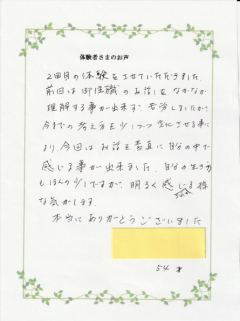 体験者さまのお声
2回目の体験をさせていただきました
前回は御住職のお話をなかなか
理解する事が出来ず、苦労しましたが、
今までの考え方を少しづつ変化させる事に
より今回はお話を素直に自分の中で
感じる事が出来ました。自分の生き方
もほんの少しですが、明るく感じる様
な気がします。
本当にありがとうございました
54才